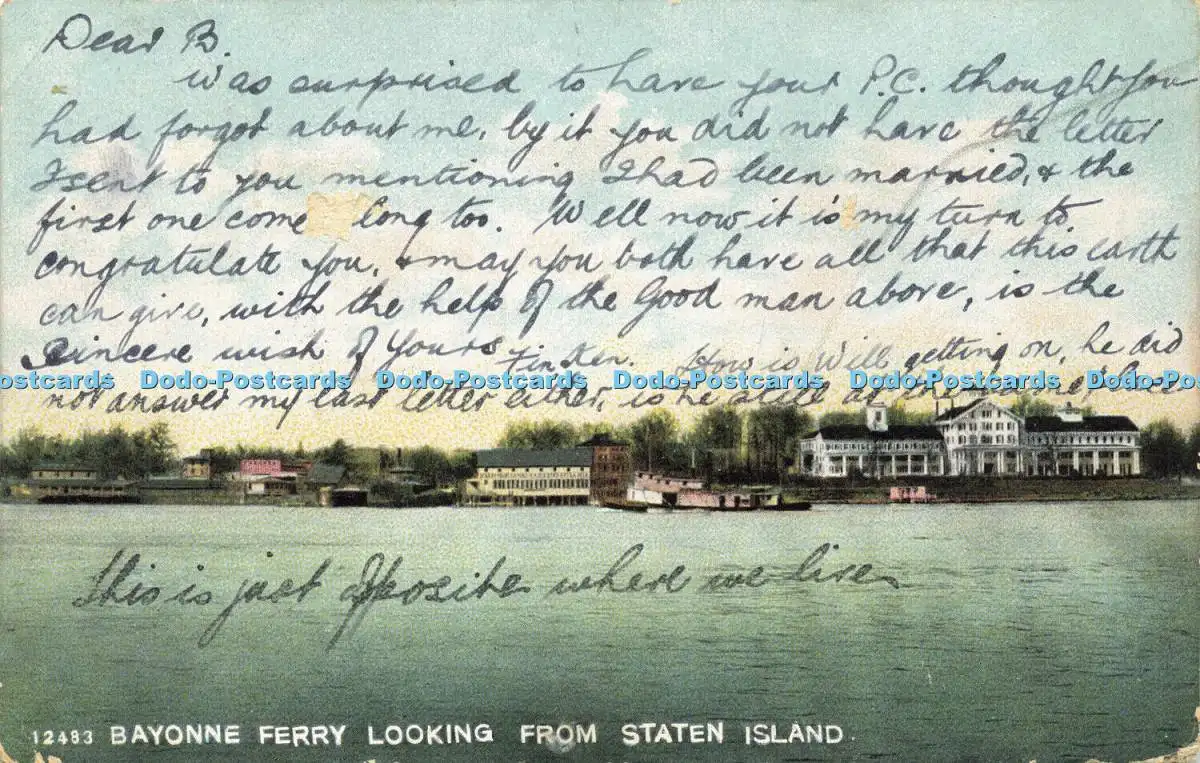 Dear B.
was surprised to have your P.C. thought you
had forgot about me, by it you did not have the letter
I sent to you mentioning I had been married, & the
first one come long too. Well now it is my turn to
congratulate you, & may you both have all that this earth
can give, with the help of the Good man above, is the
Sincere wish of Yours How is Will getting on, he did
Dodo-Postcards Dodo-Postcards Dodo-Postcards Dodo-Postcards Dodo-Postcards Dodo-Postcards
not answer my last letter either, is he still at the
This is just Opposite where we live
12483 BAYONNE FERRY LOOKING FROM STATEN ISLAND.